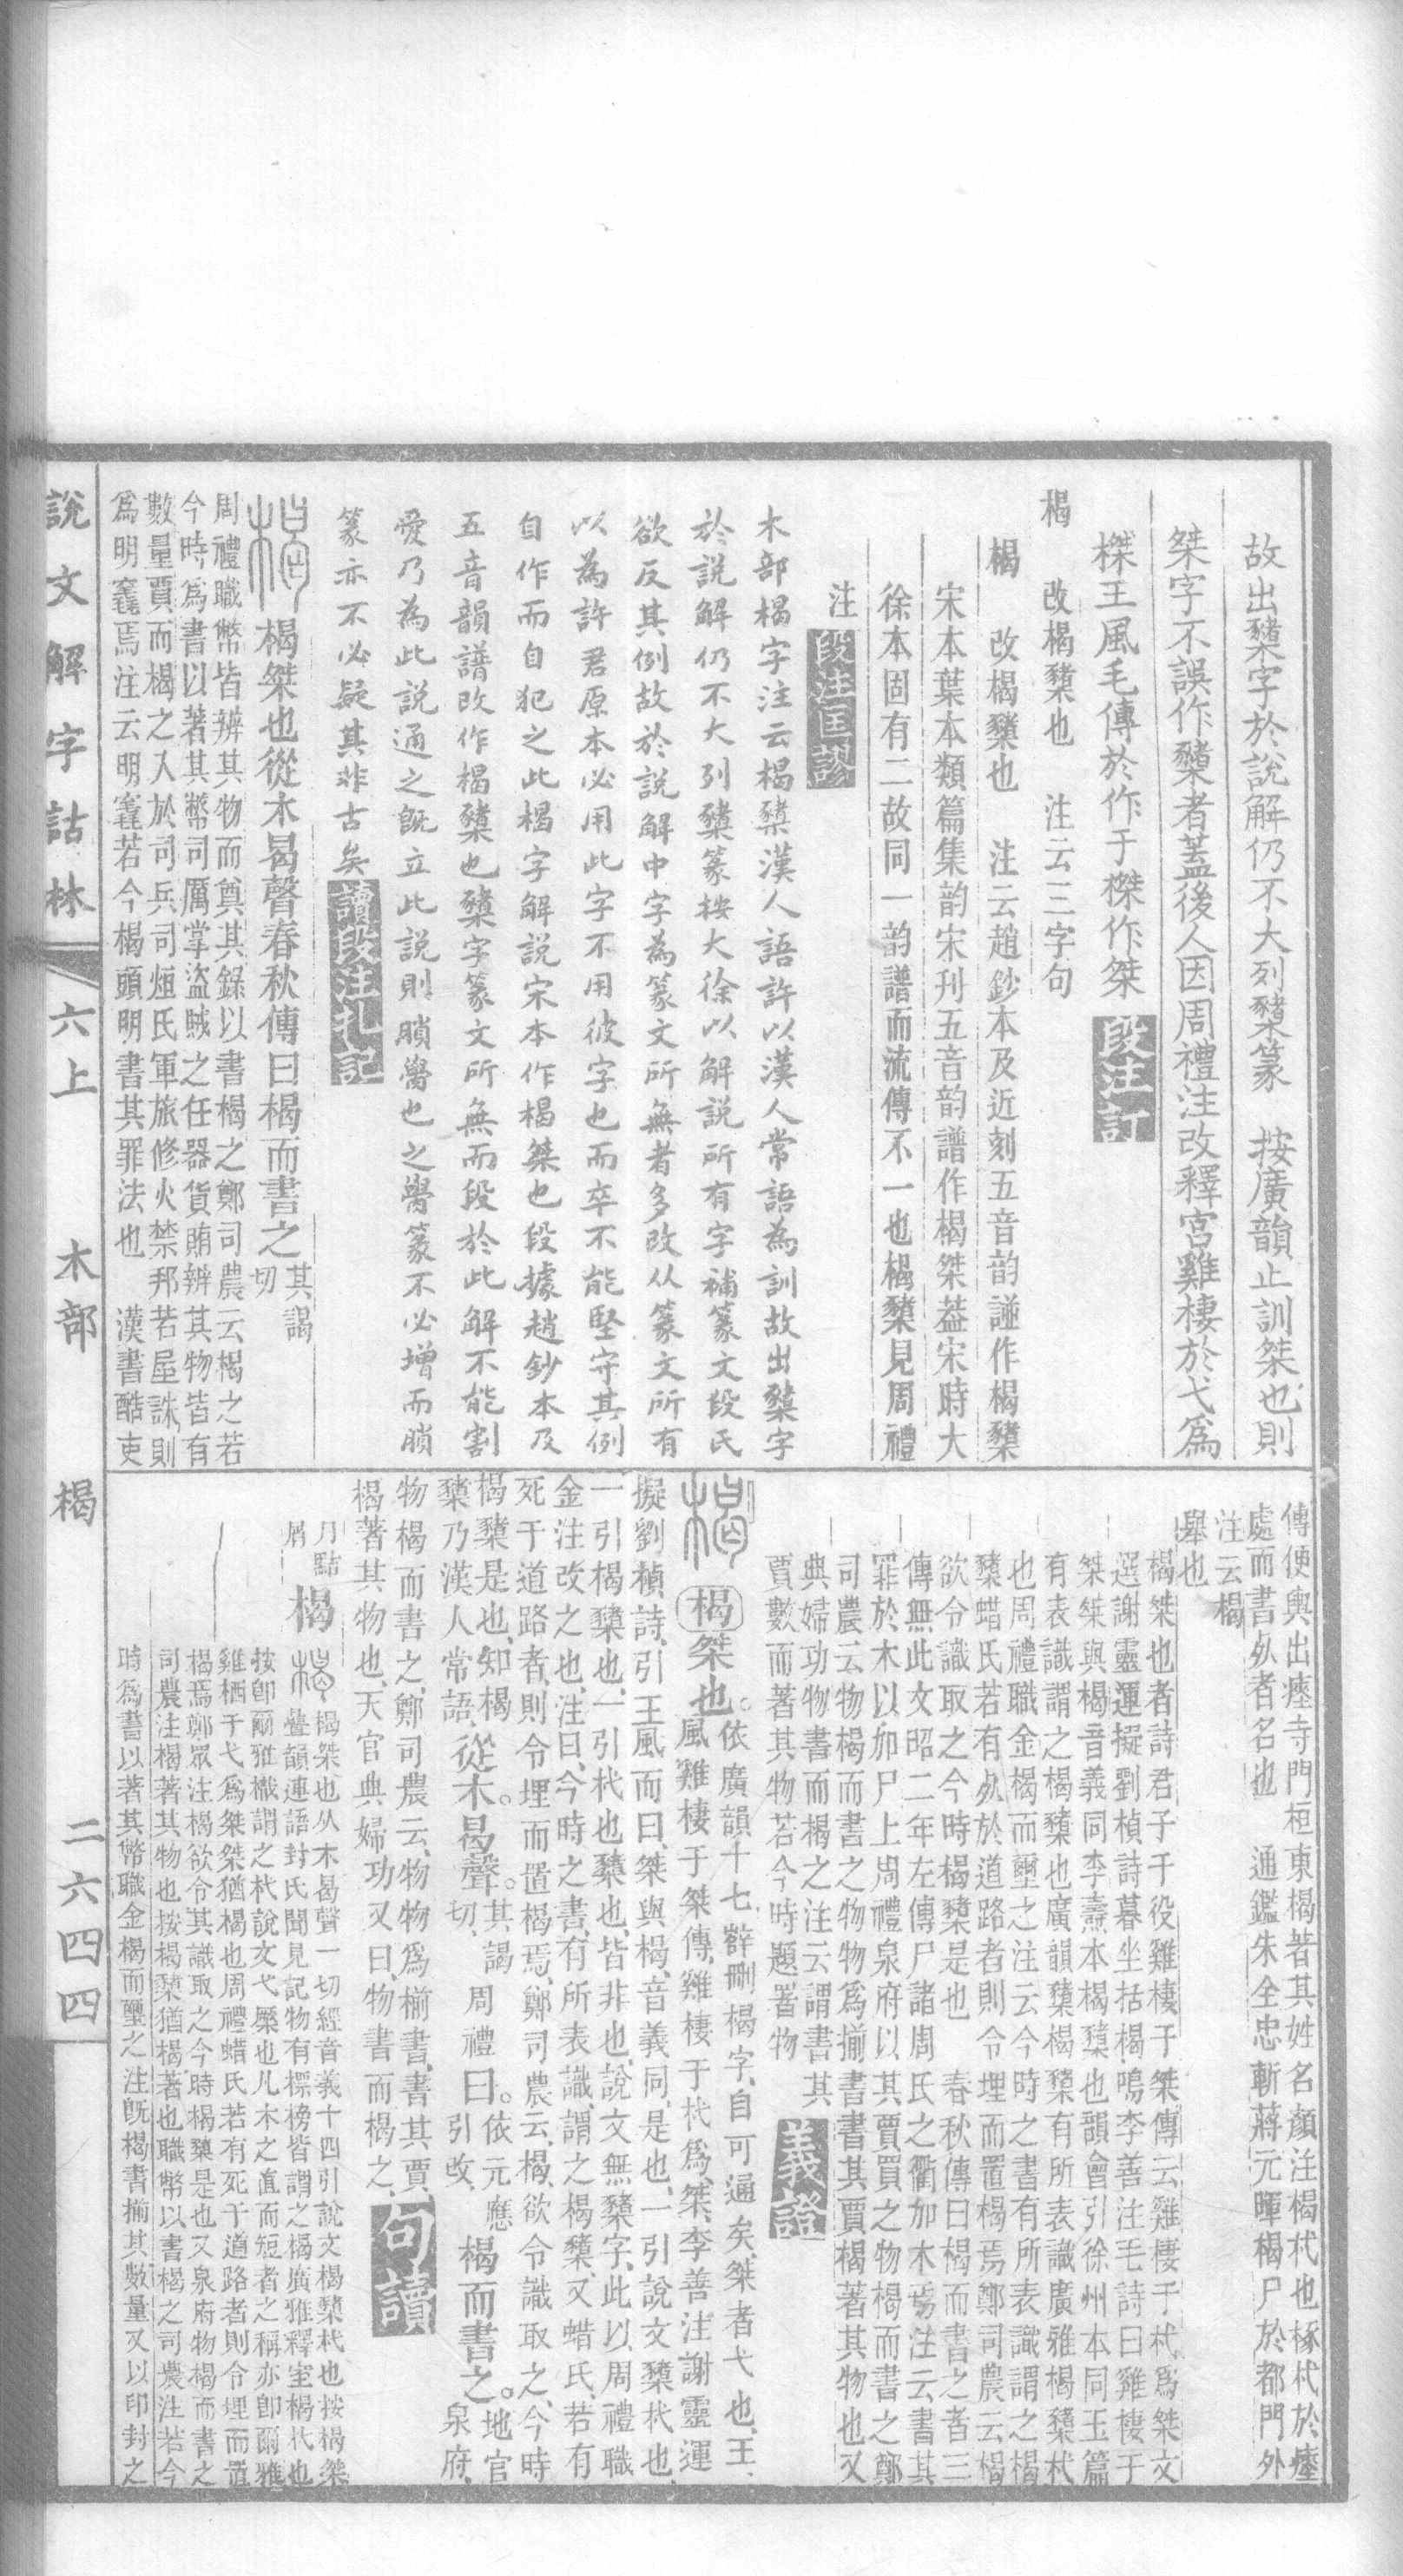 故出櫫字於說解仍不大列櫫篆　按廣韻止訓桀也則
桀字不誤作櫫者蓋後人因周禮注改釋宮雞棲於弋爲
榤王風毛傳於作于榤作桀 段注訂
楬　改楬櫫也　注云三字句
楬　改楬櫫也　注云趙鈔本及近刻五音韵譜作楬櫫
宋本葉本類篇集韵宋刊五音韵譜作楬桀葢宋時大
徐本固有二故同一韵譜而流傳不一也楬櫫見周禮
注 段注匡謬
木部楬字注云楬櫫漢人語許以漢人常語為訓故出櫫字
於說解仍不大列櫫篆按大徐以解說所有字補篆文段氏
欲反其例故於說解中字為篆文所無者多改从篆文所有
以為許君原本必用此字不用彼字也而卒不能堅守其例
自作而自犯之此楬字解說宋本作楬桀也段據趙鈔本及
五音韻譜改作楬櫫也櫫字篆文所無而段於此解不能割
愛乃為此說通之既立此說則䏿黌也之黌篆不必增而䏿
篆亦不必疑其非古矣 讀段注札記
楬桀也從木曷聲春秋傳曰楬而書之 其謁切
周禮職幣皆辨其物而奠其錄以書楬之鄭司農云楬之若
今時爲書以著其幣司厲掌盜賊之任器貨賄辨其物皆有
數量賈而楬之入於司兵司烜氏軍旅修火禁邦若屋誅則
爲明竁焉注云明竁若今楬頭明書其罪法也　漢書酷吏
傳便輿出瘞寺門桓東楬著其姓名顏注楬杙也椓杙於瘞
處而書死者名也　通鑑朱全忠斬蔣元暉楬尸於都門外
注云楬
舉也
楬桀也者詩君子于役雞棲于桀傳云雞棲于杙爲桀文
選謝靈運擬劉楨詩暮坐括楬鳴李善注毛詩曰雞棲于
桀桀與楬音義同李燾本楬櫫也韻會引徐州本同玉篇
有表識謂之楬櫫也廣韻櫫楬櫫有所表識廣雅楬櫫杙
也周禮職金楬而璽之注云今時之書有所表識謂之楬
櫫蜡氏若有死於道路者則令埋而置楬焉鄭司農云楬
欲令識取之今時楬櫫是也　春秋傳曰楬而書之者三
傳無此文昭二年左傳尸諸周氏之衢加木焉注云書其
罪於木以加尸上周禮泉府以其賈買之物楬而書之鄭
司農云物楬而書之物物爲揃書書其賈楬著其物也又
典婦功物書而楬之注云謂書其
賈數而著其物若今時題署物 義證
楬桀也。依廣韻十七薛刪楬字、自可通矣、桀者弋也、王、
風雞棲于桀傳、雞棲于杙爲、桀、李善注謝靈運
擬劉楨詩、引王風而曰、桀與楬、音義同、是也、一引說文櫫杙也、
一引楬櫫也、一引杙也櫫也、皆非也、說文無櫫字、此以周禮職
金注改之也、注曰、今時之書、有所表識、謂之楬櫫、又蜡氏、若有
死于道路者、則令埋而置楬焉、鄭司農云、楬、欲令識取之、今時
楬櫫是也、知楬
櫫乃漢人常語、從木。曷聲。其謁切、周禮曰。依元應引改、楬而書之。地官泉府、
物楬而書之、鄭司農云、物物爲揃書、書其賈、
楬著其物也、天官典婦功又曰、物書而楬之、 句讀
月點屑　楬　楬桀也从木曷聲一切經音義十四引說文楬櫫杙也按楬桀
疊韻連語封氏聞見記物有標榜皆謂之楬廣雅釋室楬杙也
按卽爾雅樴謂之杙說文弋橜也凡木之直而短者之稱亦卽爾雅
雞栖于弋爲桀桀猶楬也周禮蜡氏若有死于道路者則令埋而置
楬焉鄭眾注楬欲令其識取之今時楬櫫是也又泉府物楬而書之
司農注楬著其物也按楬櫫猶楬著也職幣以書楬之司農注若今
時爲書以著其幣職金楬而璽之注旣楬書揃其數量又以印封之
說文解字詁林　六上　木部　楬　二六四四